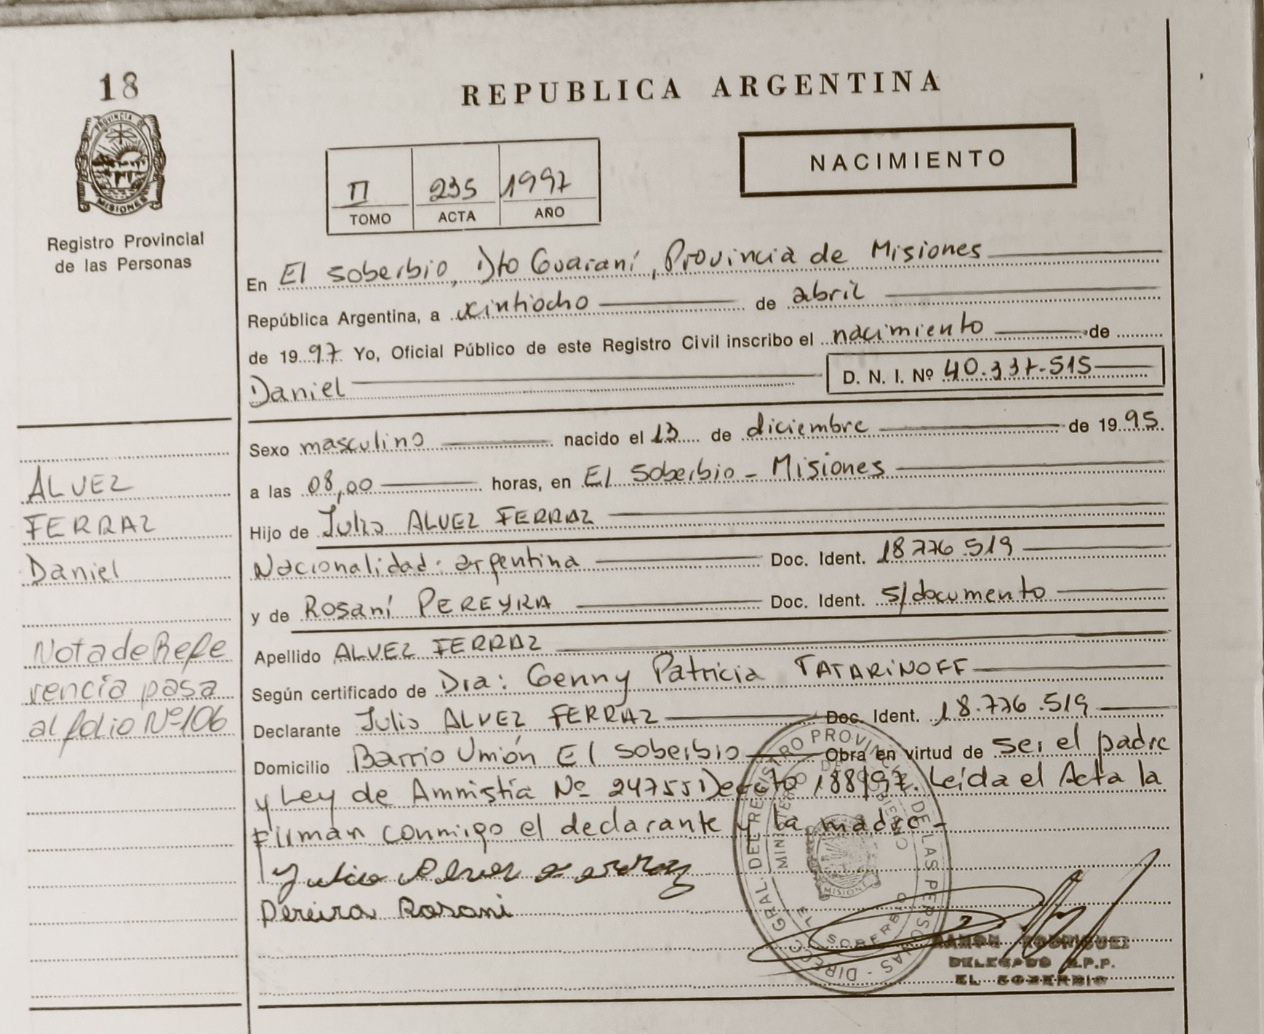 18
PROVINCIA
MISIONES
Registro Provincial
de las Personas
REPUBLICA ARGENTINA
NACIMIENTO
II 235 1997
TOMO ACTA AÑO
En El Soberbio, Dto Guaraní, Provincia de Misiones
República Argentina, a veintiocho de abril
de 1997 Yo, Oficial Público de este Registro Civil inscribo el nacimiento de
Daniel D. N. I. Nº 40.337-515
Sexo masculino nacido el 13 de diciembre de 1995
a las 08,00 horas, en El Soberbio - Misiones
Hijo de Julio ALVEZ FERRAZ
Nacionalidad: argentina Doc. Ident. 18.776.519
y de Rosaní PEREYRA Doc. Ident. s/documento
Apellido ALVEZ FERRAZ
Según certificado de Dra: Genny Patricia TATARINOFF
Declarante Julio ALVEZ FERRAZ Doc. Ident. 18.776.519
Domicilio Barrio Unión El Soberbio Obra en virtud de ser el padre
y Ley de Amnistía Nº 24755 Decreto 188/97. Leída el Acta la
Firman conmigo el declarante y la madre-
Pereira Rosani
ALVEZ
FERRAZ
Daniel
Nota de Refe
rencia pasa
al folio Nº 106
DIRECC. GRAL. DEL REGISTRO PROVINCIAL DE LAS PERSONAS
MINISTERIO DE GOBIERNO
MISIONES
EL SOBERBIO
RAMON RODRIGUEZ
DELEGADO R.P.P.
EL SOBERBIO